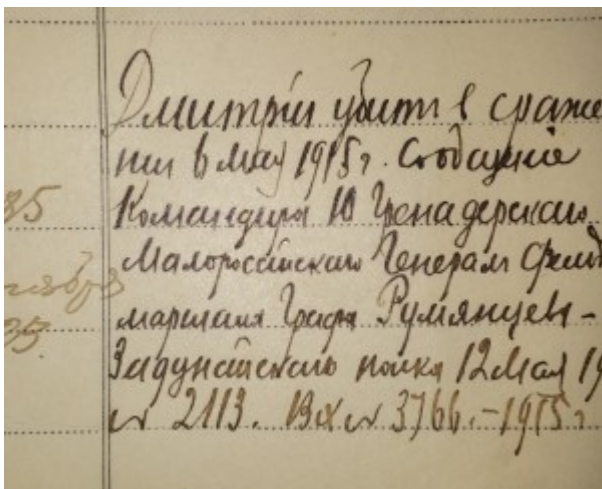 Дмитрій убитъ в сраже
нiи 6 мая 1915 г. Сообщение
35 Командира 10 Гренадерскаго
Малороссійскаго Генералъ Фельд
маршала Графа Румянцева-
35. Задунайскаго полка 12 Мая 19
№ 2113. Вх № 3766.-1915 г